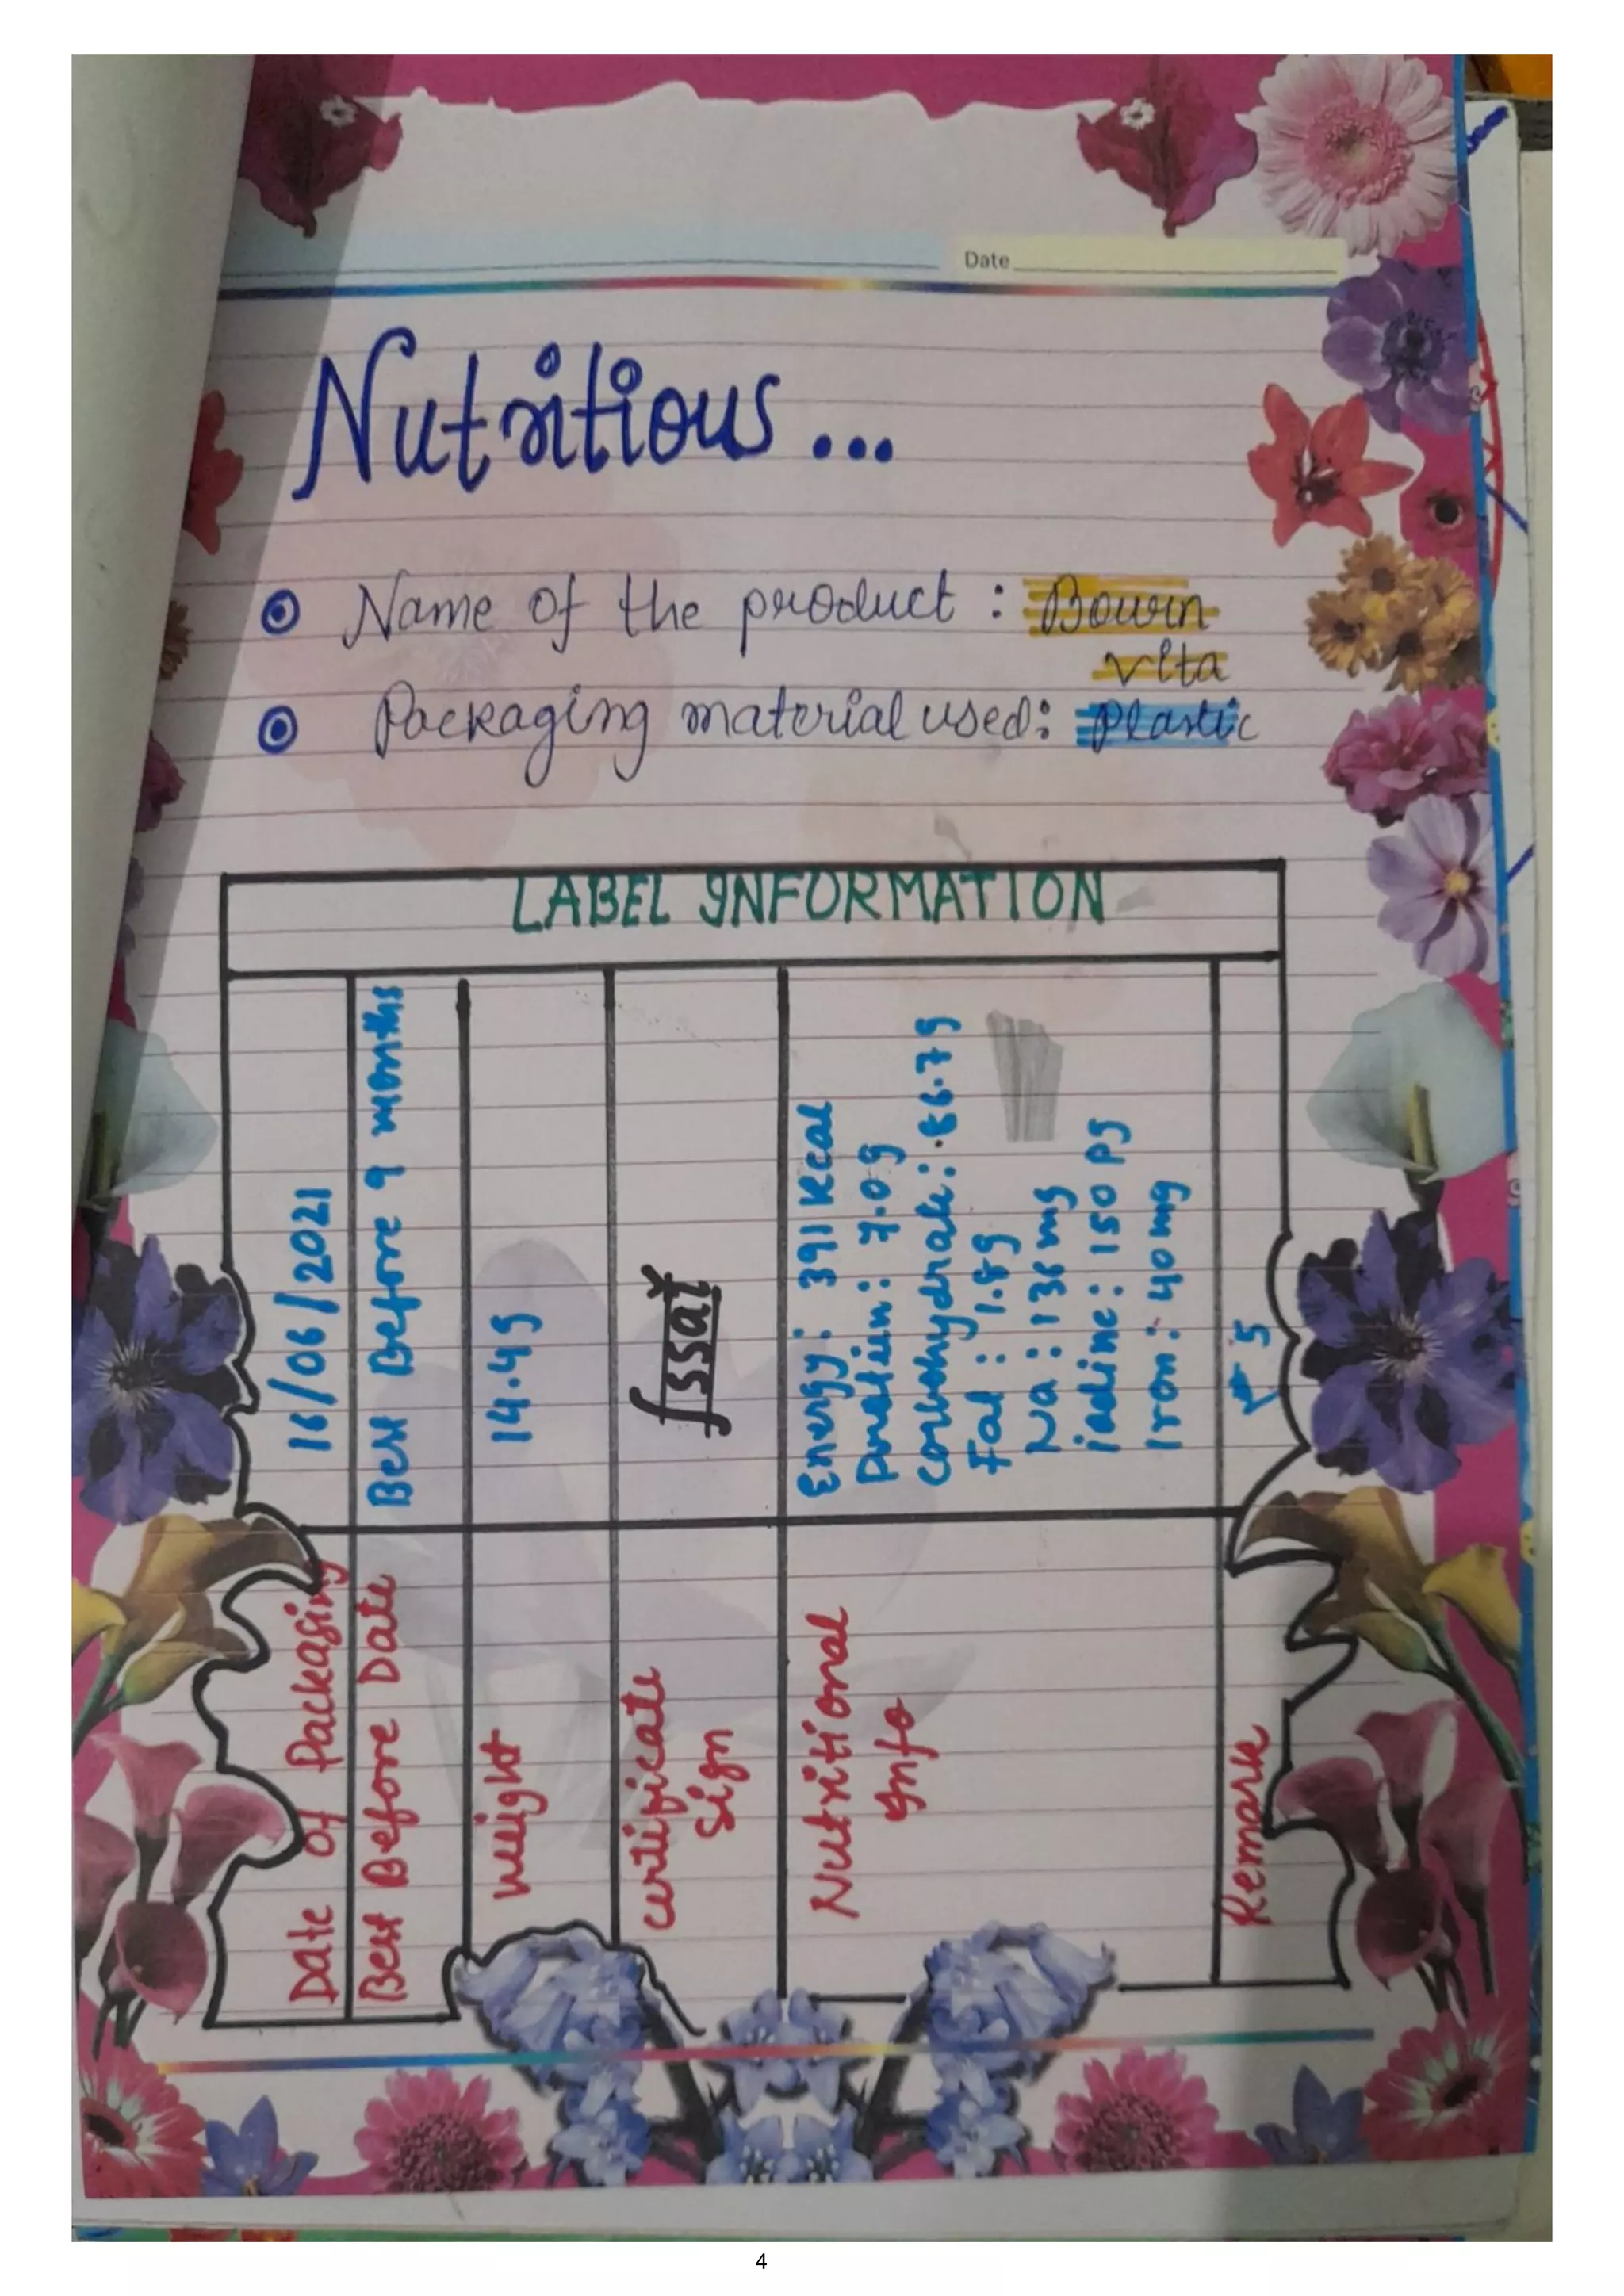 Date
Nutritious...
Name of the product : Bourn
vita
Packaging material used: Plastic
LABEL INFORMATION
Date of Packaging
16/06/2021
Best Before Date
Best Before 9 months
Weight
14.4g
certificate
Sign
fssai
Nutritional
Info
Energy: 391 Kcal
Protein: 7.0g
Carbohydrate: 86.7g
Fat: 1.8g
Na: 136 mg
iodine: 150 pg
Iron: 40 mg
Remark
5
4